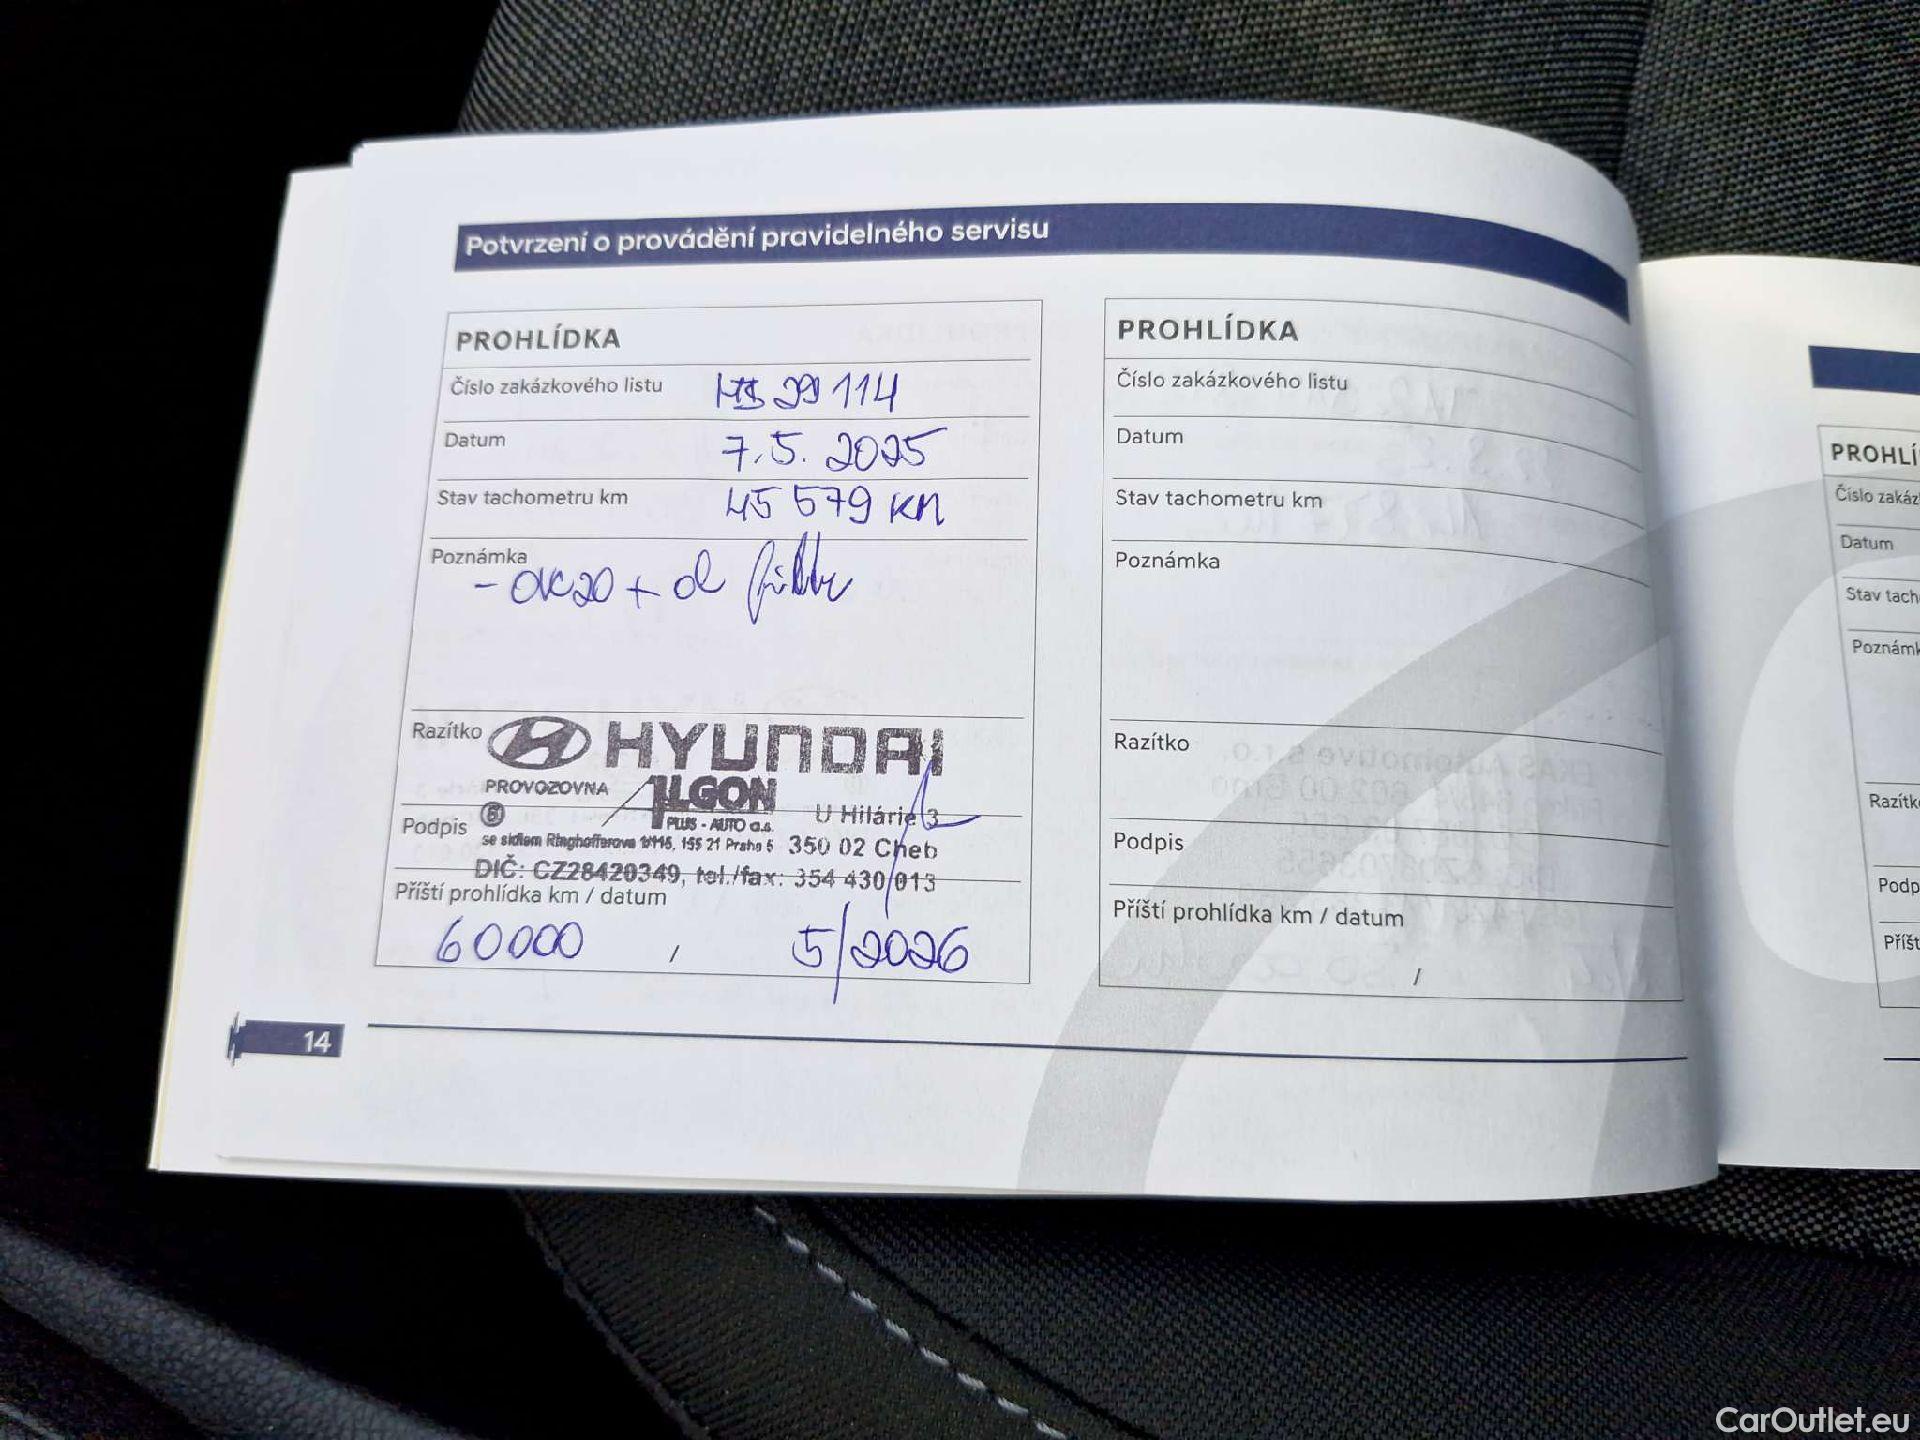 Potvrzení o provádění pravidelného servisu
PROHLÍDKA
Číslo zakázkového listu 29114
Datum 7.5. 2025
Stav tachometru km 45 579 KM
Poznámka
+
Razítko HYUNDAI
PROVOZOVNA ALGON
PLUS - AUTO a.s.
U Hilárie 3
Podpis
se sídlem Ringhofferova 1/115, 155 21 Praha 5 350 02 Cheb
DIČ: CZ28420349, tel./fax: 354 430 013
Příští prohlídka km / datum
60000 / 5/2026
14
PROHLÍDKA
Číslo zakázkového listu
Datum
Stav tachometru km
Poznámka
Razítko
Podpis
Příští prohlídka km / datum
/
PROHLÍ
Číslo zakáz
Datum
Stav tach
Poznámk
Razítk
Podp
Příšt
CarOutlet.eu